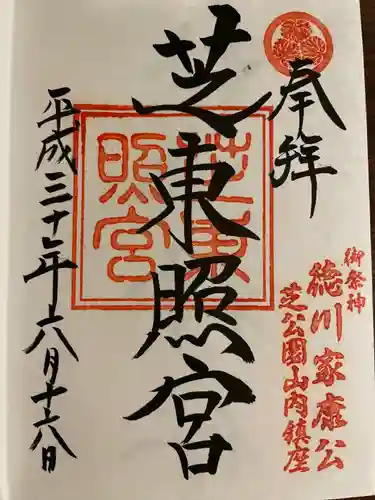 奉拝
御祭神
徳川家康公
芝公園山内鎮座
芝東照宮
芝東照宮
平成三十年六月十六日